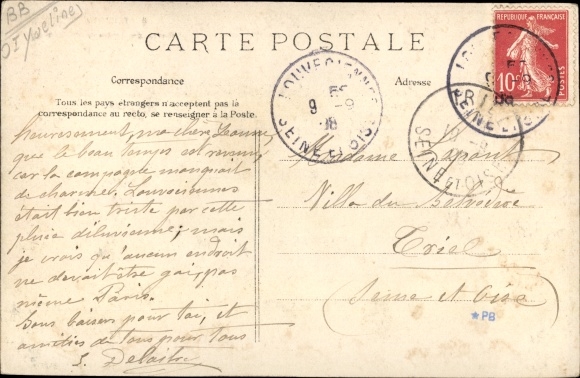 BB
Yvelines
CARTE POSTALE
RÉPUBLIQUE FRANÇAISE
10
Correspondance
Adresse
Tous les pays étrangers n'acceptent pas la
correspondance au recto, se renseigner à la Poste.
LOUVECIENNES
9 -9
08
SEINE ET OISE
Heureusement, ma chère Jeanne,
que le beau temps est revenu,
car la campagne manquait
de charme. Louveciennes
était bien triste par cette
pluie diluvienne; mais
je crois qu'aucun endroit
ne devait être gai, pas
même Paris.
Bons baisers pour toi, et
amitiés de tous pour tous
S. Delaitre
Madame Lapont
Villa du Belvédère
Triel
Seine et Oise
*PB